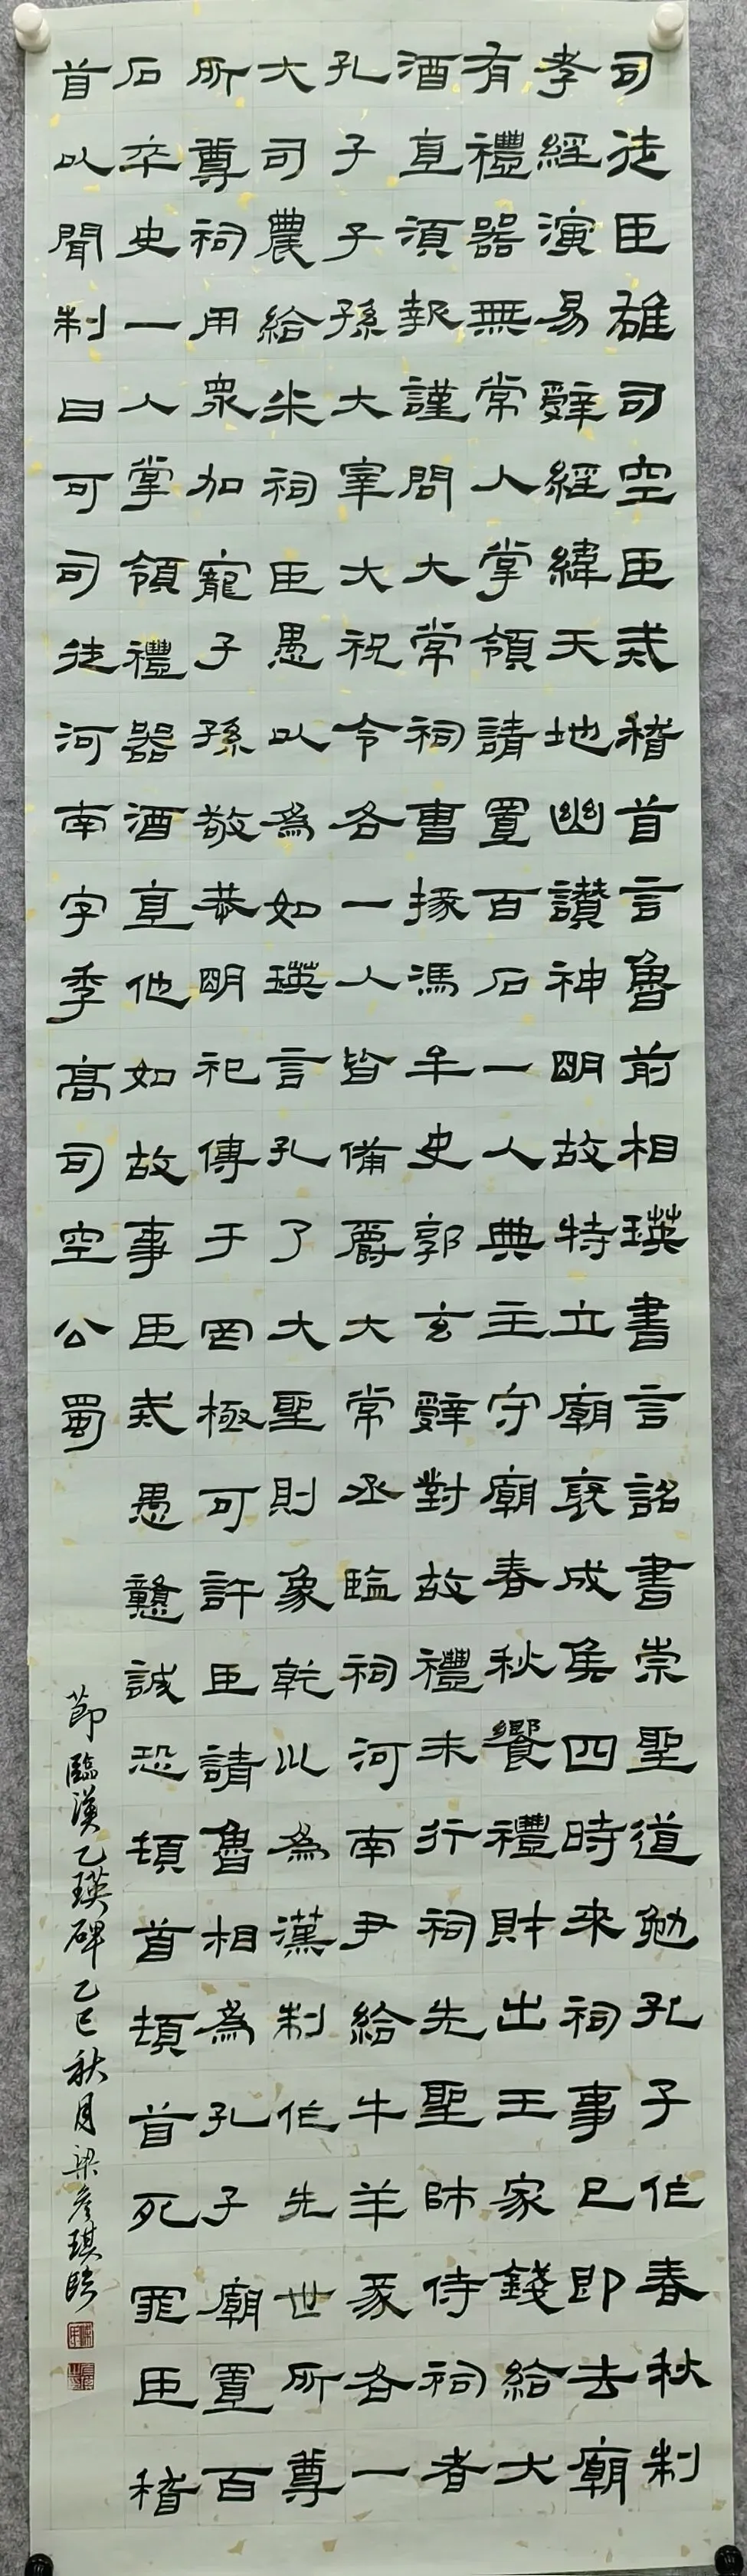 司徒臣雄司空臣戒稽首言魯前相瑛書言詔書崇聖道勉孔子作春秋制
孝經演易辭經緯天地幽讚神明故特立廟褒成侯四時來祠事已即去廟
有禮器無常人掌領請置百石一人典主守廟春秋饗禮財出王家錢給大
酒直須報謹問大常祠曹掾馮牟史郭玄辭對故禮未行祠先聖師侍祠者
孔子子孫大宰大祝令各一人皆備爵大常丞監祠河南尹給牛羊豕各一
大司農給米祠臣愚以為如瑛言孔了大聖則象乾巛為漢制作先世所尊
所尊祠用眾加寵子孫敬恭明祀傳于罔極可許臣請魯相為孔子廟置百
石卒史一人掌領禮器酒直他如故事臣戒愚戇誠恐頓首頓首死罪臣稽
首以聞制曰可司徒河南字季高司空公蜀
節臨漢乙瑛碑乙巳秋月梁彥琪